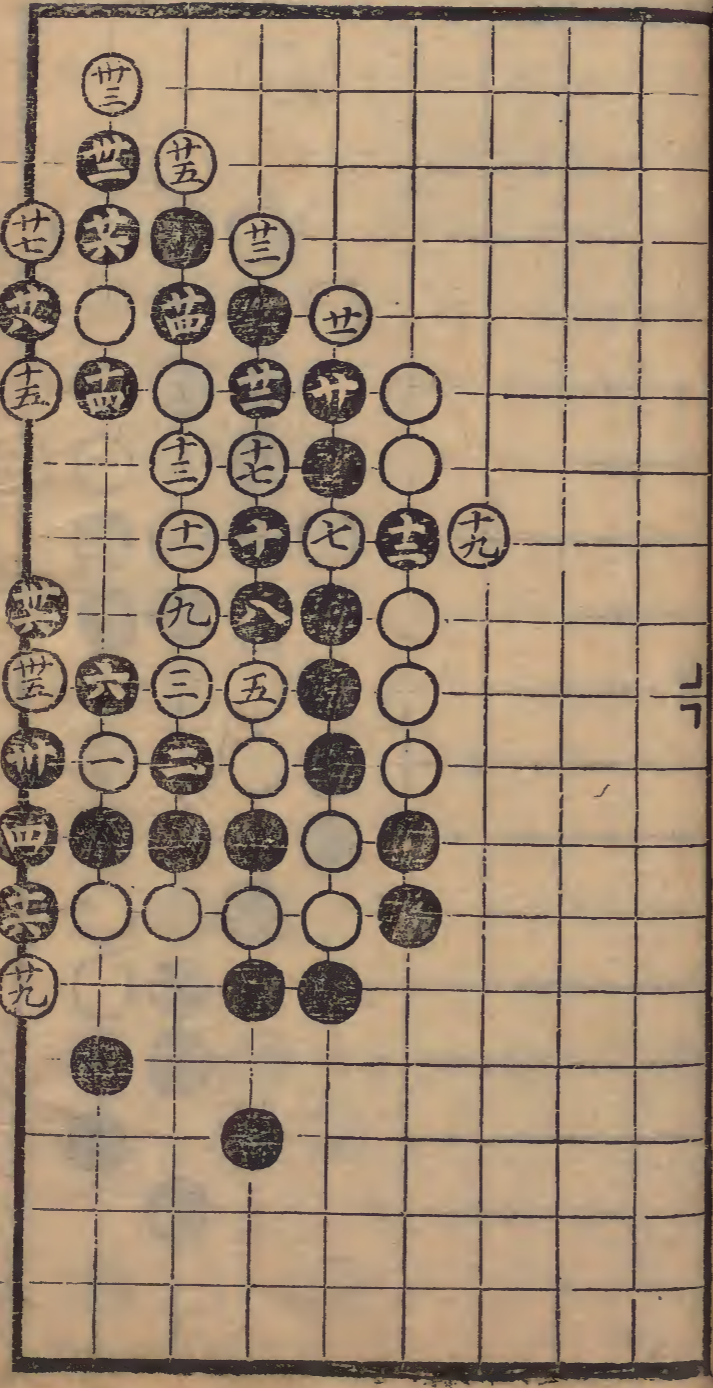 卅三
卅二 廿五
廿七 廿六 廿三
廿八 廿四 廿一
十五 十四 廿二 廿
十三 十七
十一 十 七 十二 十九
卅六 九 八
卅五 六 三 五
卅 一 二
四
十六
廿九